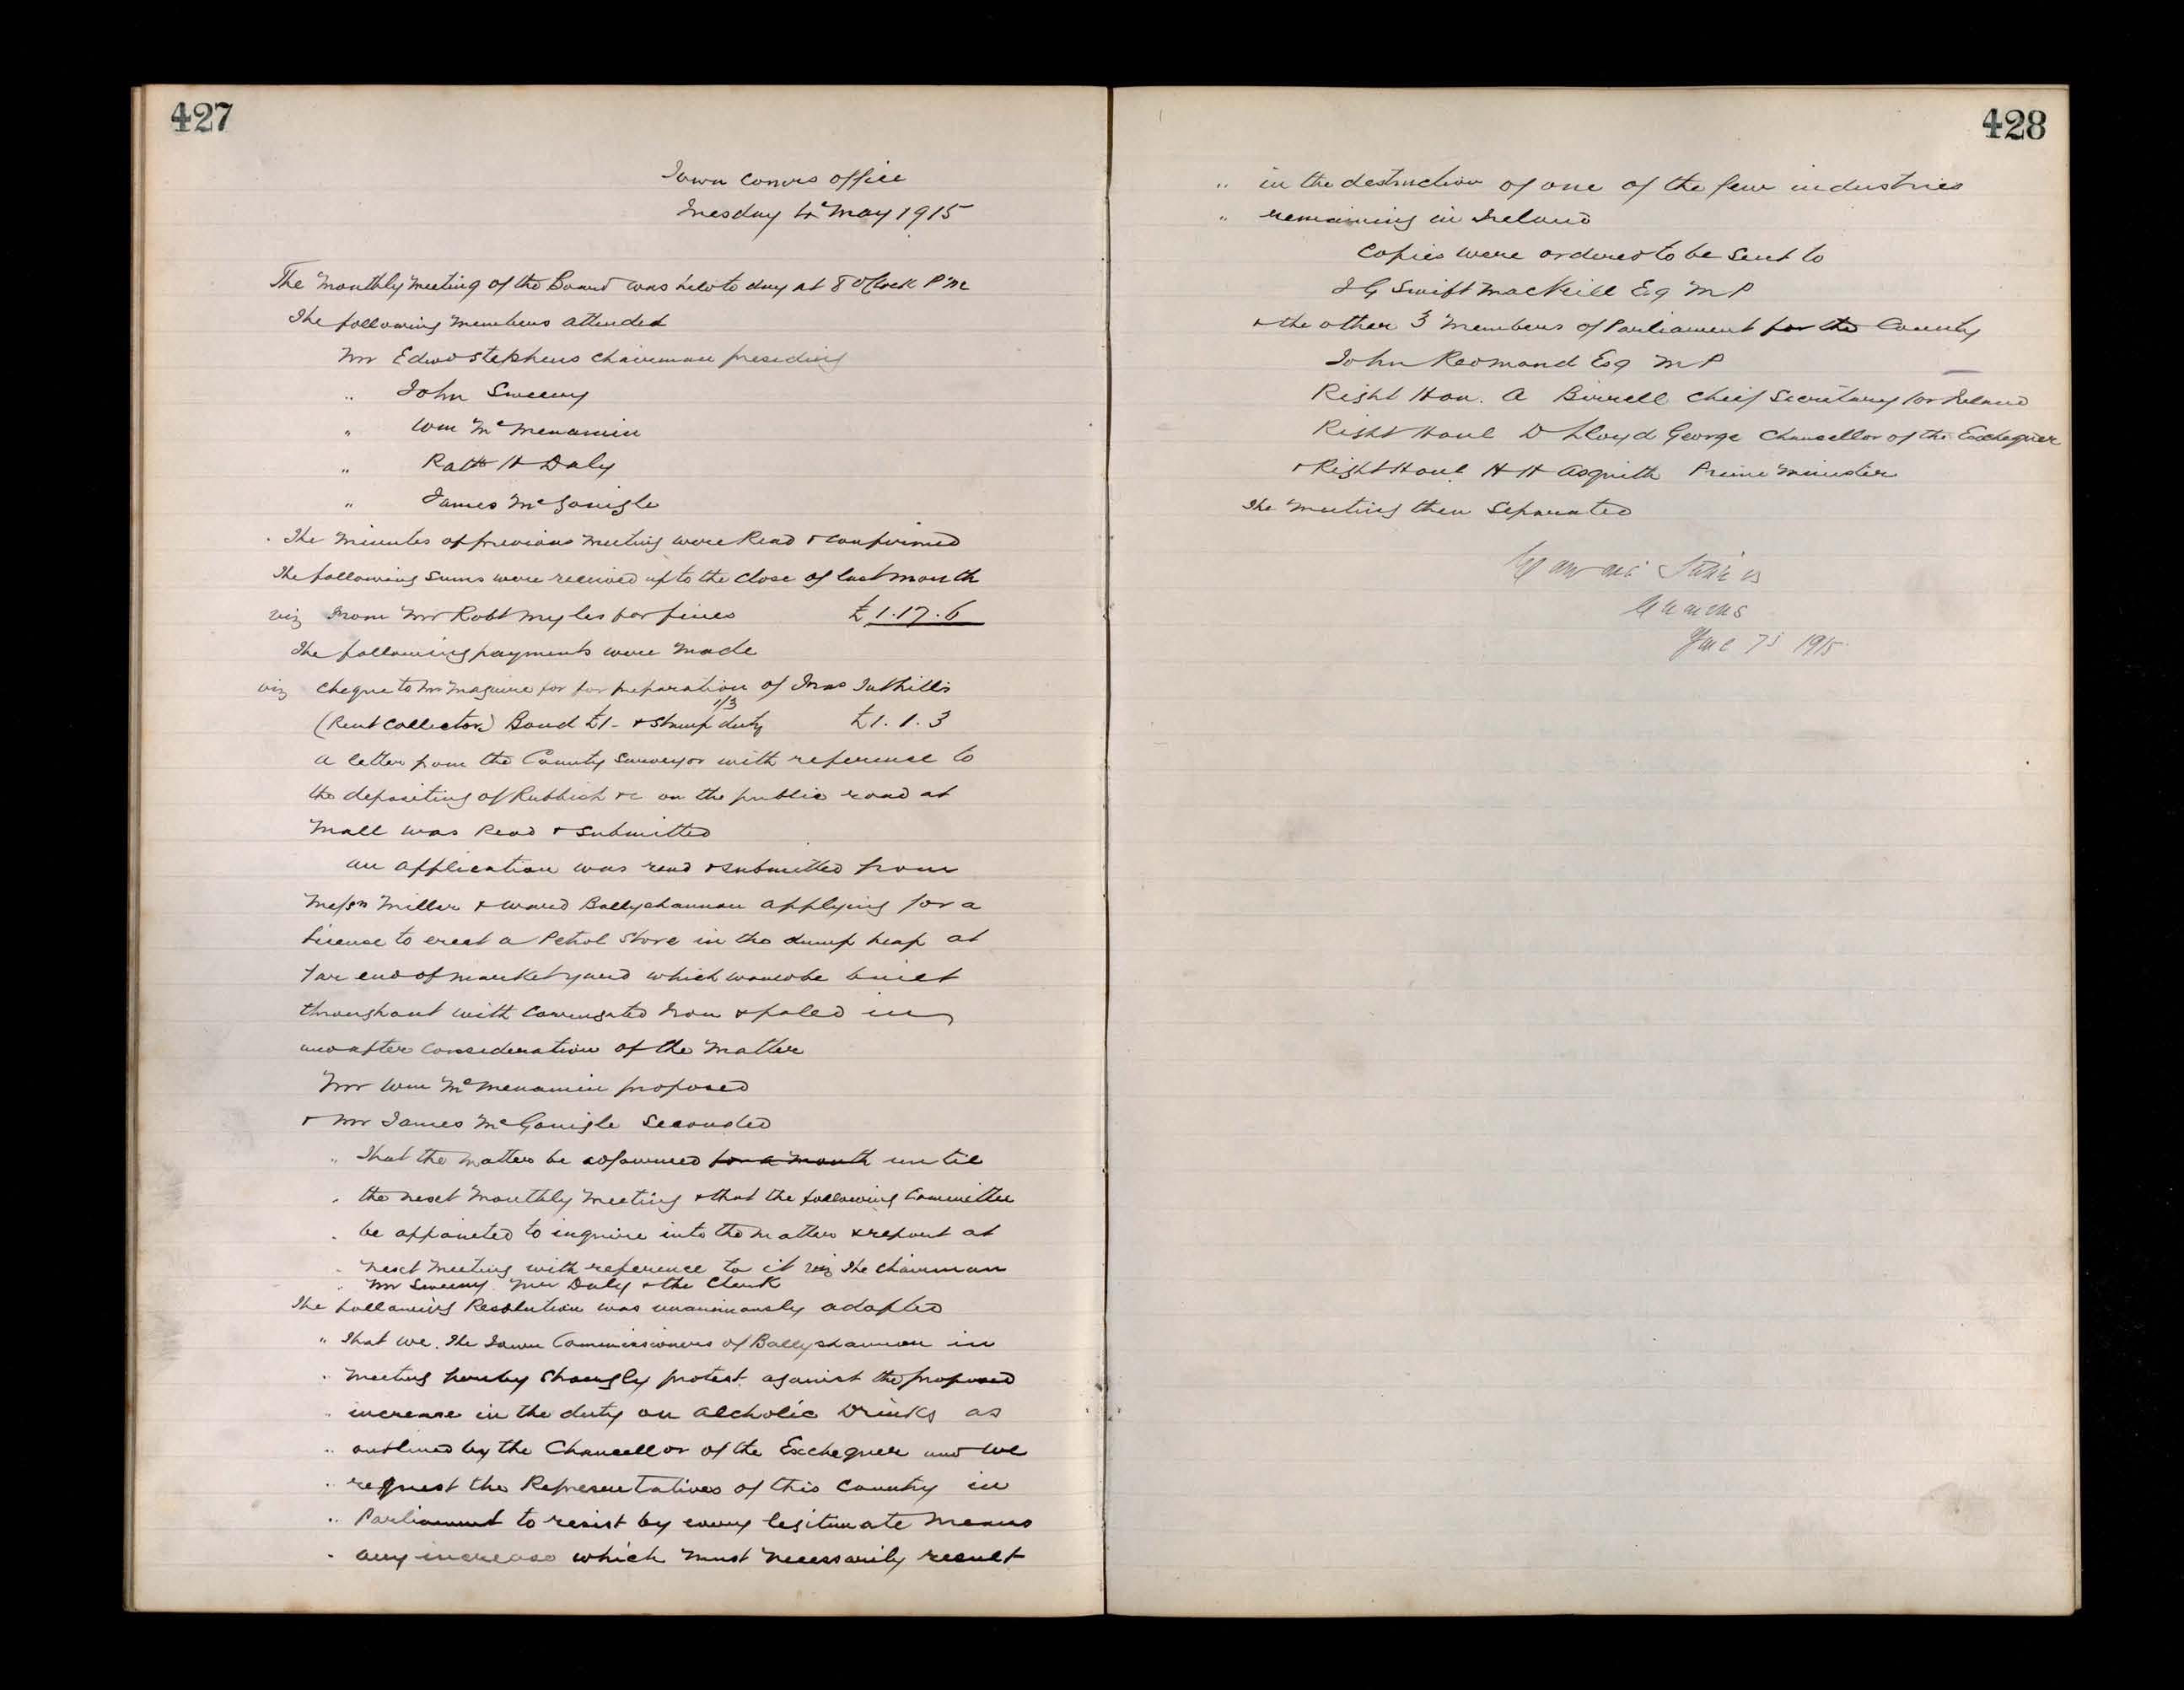 427
Town Comrs office
Tuesday 4th May 1915
The Monthly Meeting of the Board was held to day at 8 O'Clock P M
The following Members attended
Mr Edwd Stephens Chairman presiding
" John Sweeny
" Wm McMenamin
" H Daly
" James McGonigle
The Minutes of previous Meeting were Read & Confirmed
The following Sums were received up to the Close of last month
viz From Mr Robt Myles for fines £1.17.6
The following payments were Made
viz Cheque to Mr Maguire for for preparation of Tuthill's
1/3
(Rent Collector) Bond £1- & Stamp duty £1.1.3
A letter from the County Surveyor with reference to
the depositing of Rubbish &c on the public road at
Mall was Read & Submitted
An application was read & submitted from
Messrs Miller & Ward Ballyshannon applying for a
License to erect a Petrol Store in the dump heap at
far end of market yard which would be built
throughout with Corrugated Iron & paled in
and after Consideration of the Matter
Mr Wm McMenamin proposed
& Mr James McGonigle Seconded
" That the matter be adjourned for a month until
" the next Monthly Meeting & that the following Committee
" be appointed to inquire into the matter & report at
" next Meeting with reference to it viz The Chairman
" Mr Sweeny Mr Daly & the Clerk
The following Resolution was unanimously adopted
" That we. The Town Commissioners of Ballyshannon in
" Meeting hereby Strongly protest against the proposed
" increase in the duty on Alcholic Drinks as
" outlined by the Chancellor of the Exchequer and we
" request the Representatives of this Country in
" Parliament to resist by every legitimate Means
" any increase which Must Necessarily result
428
" in the destruction of one of the few industries
" remaining in Ireland
Copies were ordered to be Sent to
J G Swift MacNeill Esq M P
& the other 3 Members of Parliament for the County
John Redmond Esq M P
Right Hon. A Birrell Chief Secretary for Ireland
Right Honl D Lloyd George Chancellor of the Exchequer
& Right Honl H H Asquith Prime Minister
The Meeting then Separated
1915